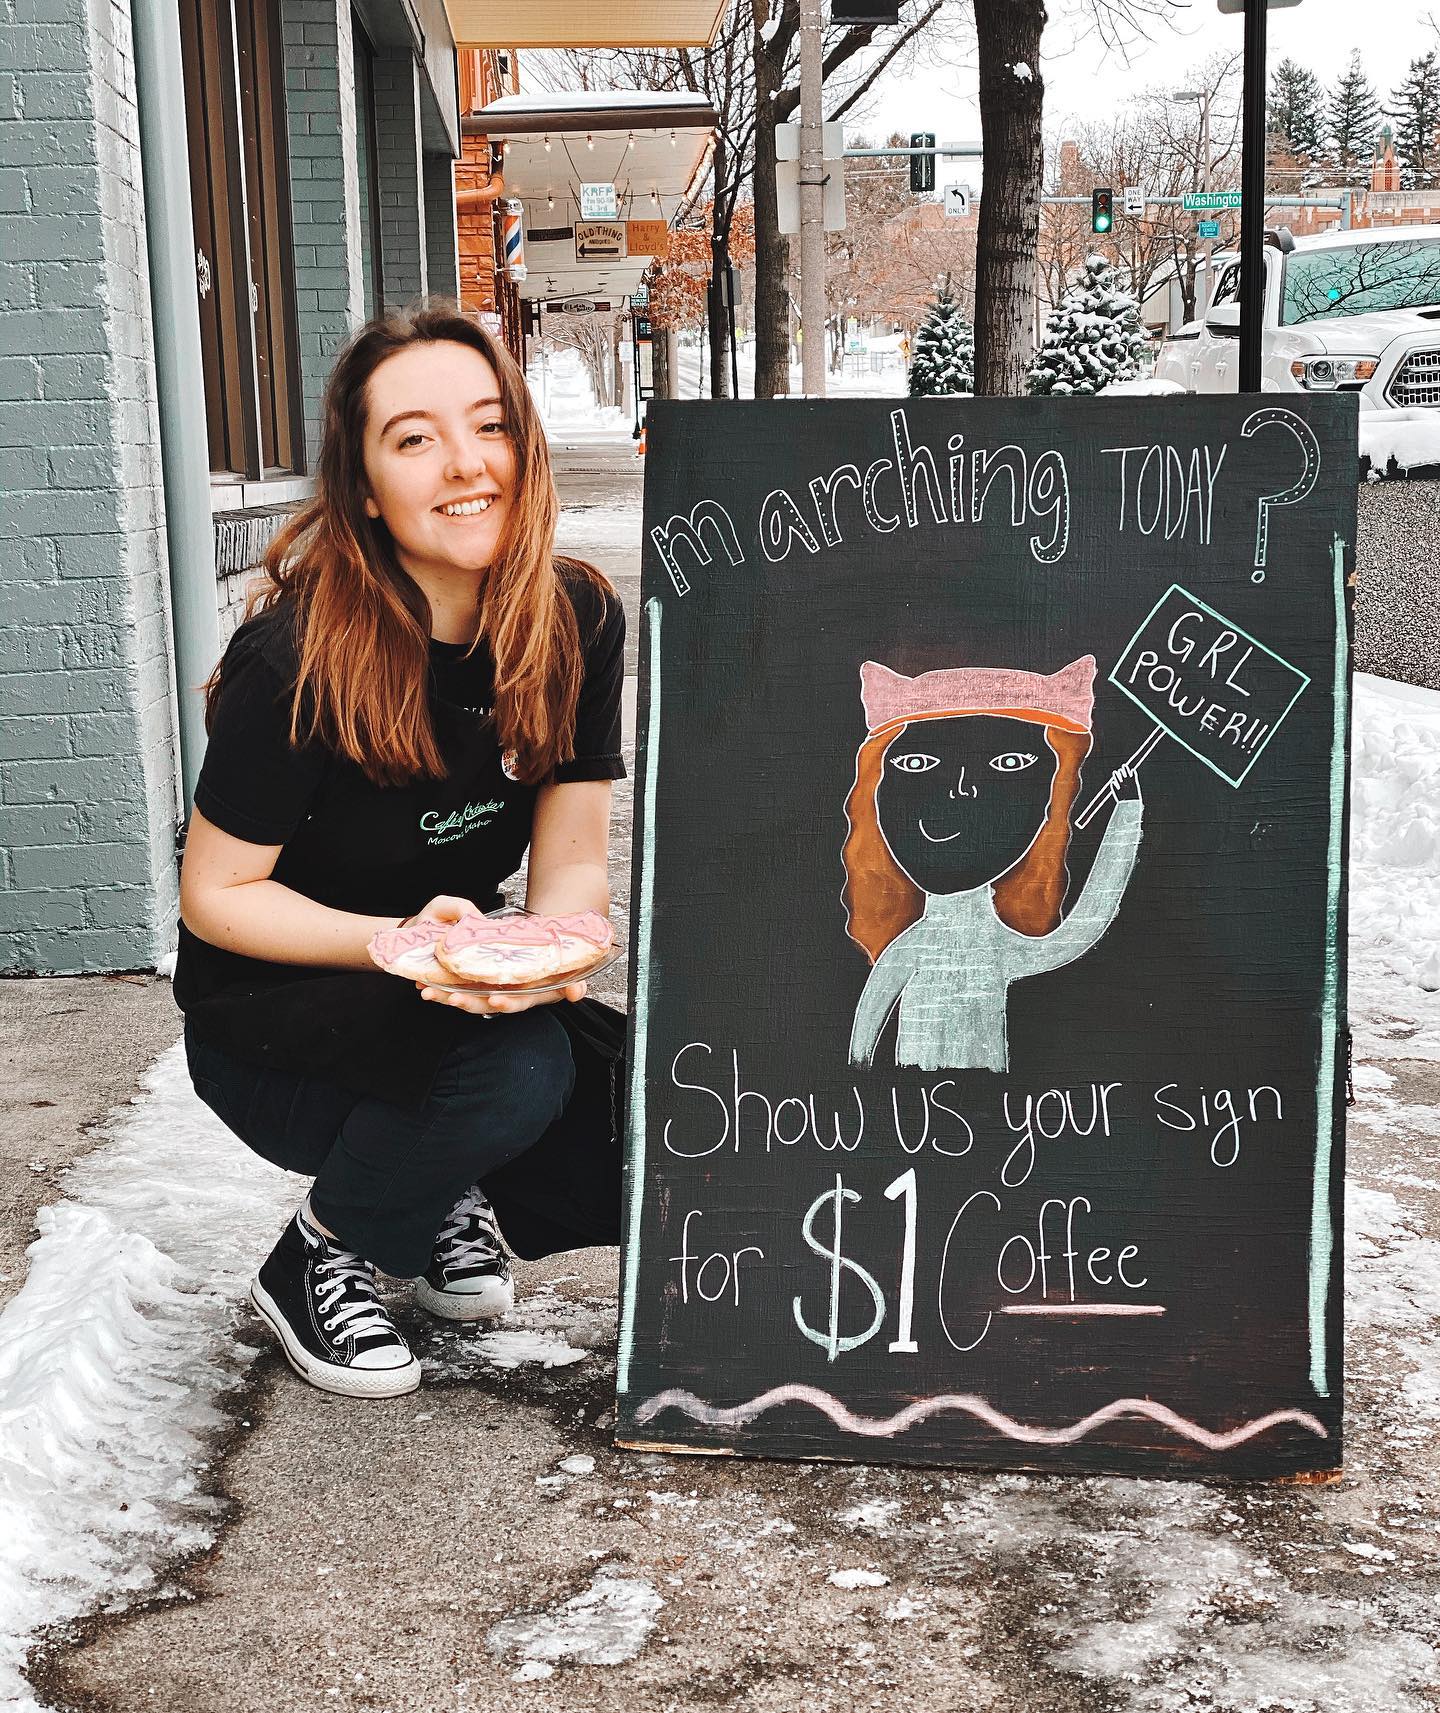 KRFP
fm 90.
OLD THING
ANTIQUES
Harry
&
Lloyd's
ONLY
ONE
WAY
Washington
marching TODAY?
GRL
POWER!!
Café Artista
Moscow Idaho
Show us your sign
for $1 Coffee